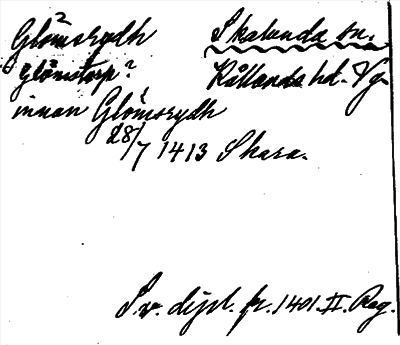 Glömsrydh Skalunda sn.
Glömstorp? Kållands hd. Vg.
innan Glömsrydh
28/7 1413 Skara.
Sv. dipl. fr. 1401. II. Reg.